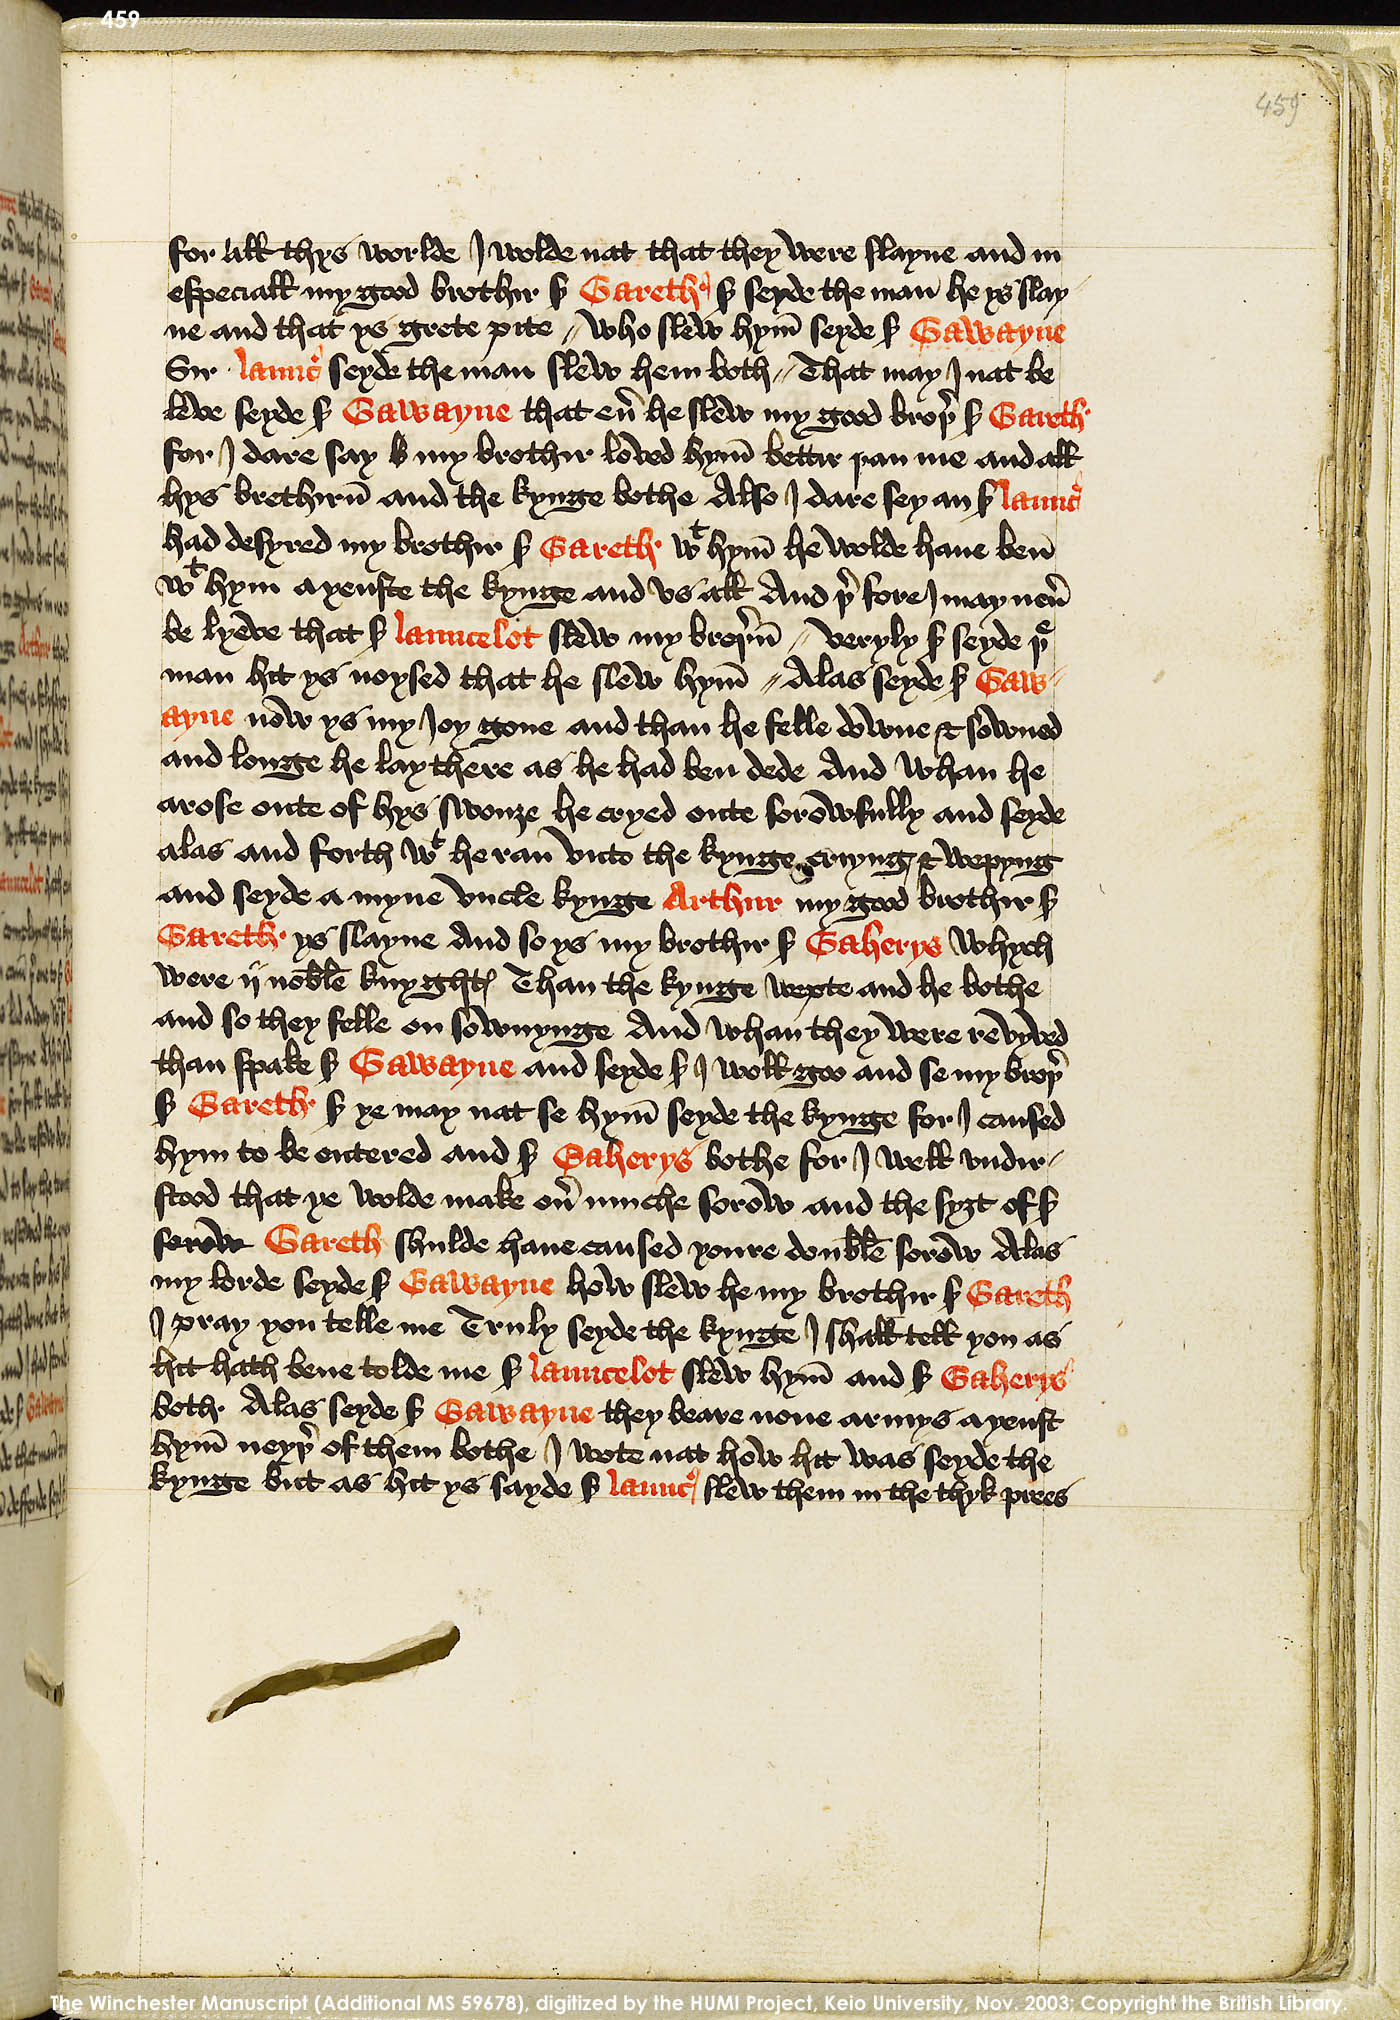 459
459
for all thys worlde I wolde nat that they were slayne and in
especiall my good brothir ẜ Gareth ẜ seyde the man he ys slay
ne and that ys grete pite // who slew hym̄ seyde ẜ Gawayne
Sir launc̉ seyde the man slew hem both // That may I nat be
leve seyde ẜ Gawayne that eũ he slew my good broþ̉ ẜ Gareth
for I dare say my brothir loved hym̄ bettir þan me and all
hys brethirn̄ and the kynge bothe Also I dare sey an ẜ launc̉
had desyred my brothir ẜ Gareth wᵗ hym̄ he wolde haue ben̄
wᵗ hym ayenste the kynge and vs all And þ̉fore I may neũ
be lyeve that ẜ launcelot slew my broþ̉n̄ // veryly ẜ seyde þᵉ
man hit ys noysed that he slew hym̄ // Alas seyde ẜ Gaw
ayne now ys my Joy gone and than he felle downe & sowned
and longe he lay there as he had ben dede And whan he
arose oute of hys swouȝe he cryed oute sorowfully and seyde
alas and forth wᵗ he ran vnto the kynge criyng & wepyng
and seyde a myne vncle kynge Arthur my good brothir ẜ
Gareth ys slayne And so ys my brothir ẜ Gaherys whych
were ij noble knyghtꝭ Than the kynge wepte and he bothe
and so they felle on sownynge And whan they were revyved
than spake ẜ Gawayne and seyde ẜ I woll goo and se my broþ̉
ẜ Gareth ẜ ye may nat se hym̄ seyde the kynge for I caused
hym to be entered and ẜ Gaherys bothe for I well vndir
stood that ye wolde make oũ muche sorow and the syȝt of ẜ
sorow Gareth shulde haue caused youre double sorow Alas
my lorde seyde ẜ Gawayne how slew he my brothir ẜ Gareth
I pray you telle me Truly seyde the kynge I shall tell you as
hit hath bene tolde me ẜ launcelot slew hym̄ and ẜ Gaherys
both Alas seyde ẜ Gawayne they beare none armys ayenst
hym̄ neyþ̉ of them bothe I wote nat how hit was seyde the
kynge but as hit ys sayde ẜ launc̉ slew them in the thyk prees
The Winchester Manuscript (Additional MS 59678), digitized by the HUMI Project, Keio University, Nov. 2003; Copyright the British Library.